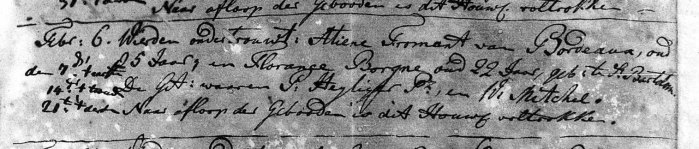 Naar afloop der Gebooden is dit Houwel: voltrokken
Febr: 6. Werden ondertrouwt: Atiene Fromant van Bordeaux, oud
25 Jaar, en Florange Borgne oud 22 Jaar, geb: te St. Bartolm.
den 7de
14de De Get: waaren P: Heyliger Pr: en W: Mitchel.
21ste Naar afloop der Gebooden is dit Houwel: voltrokken.